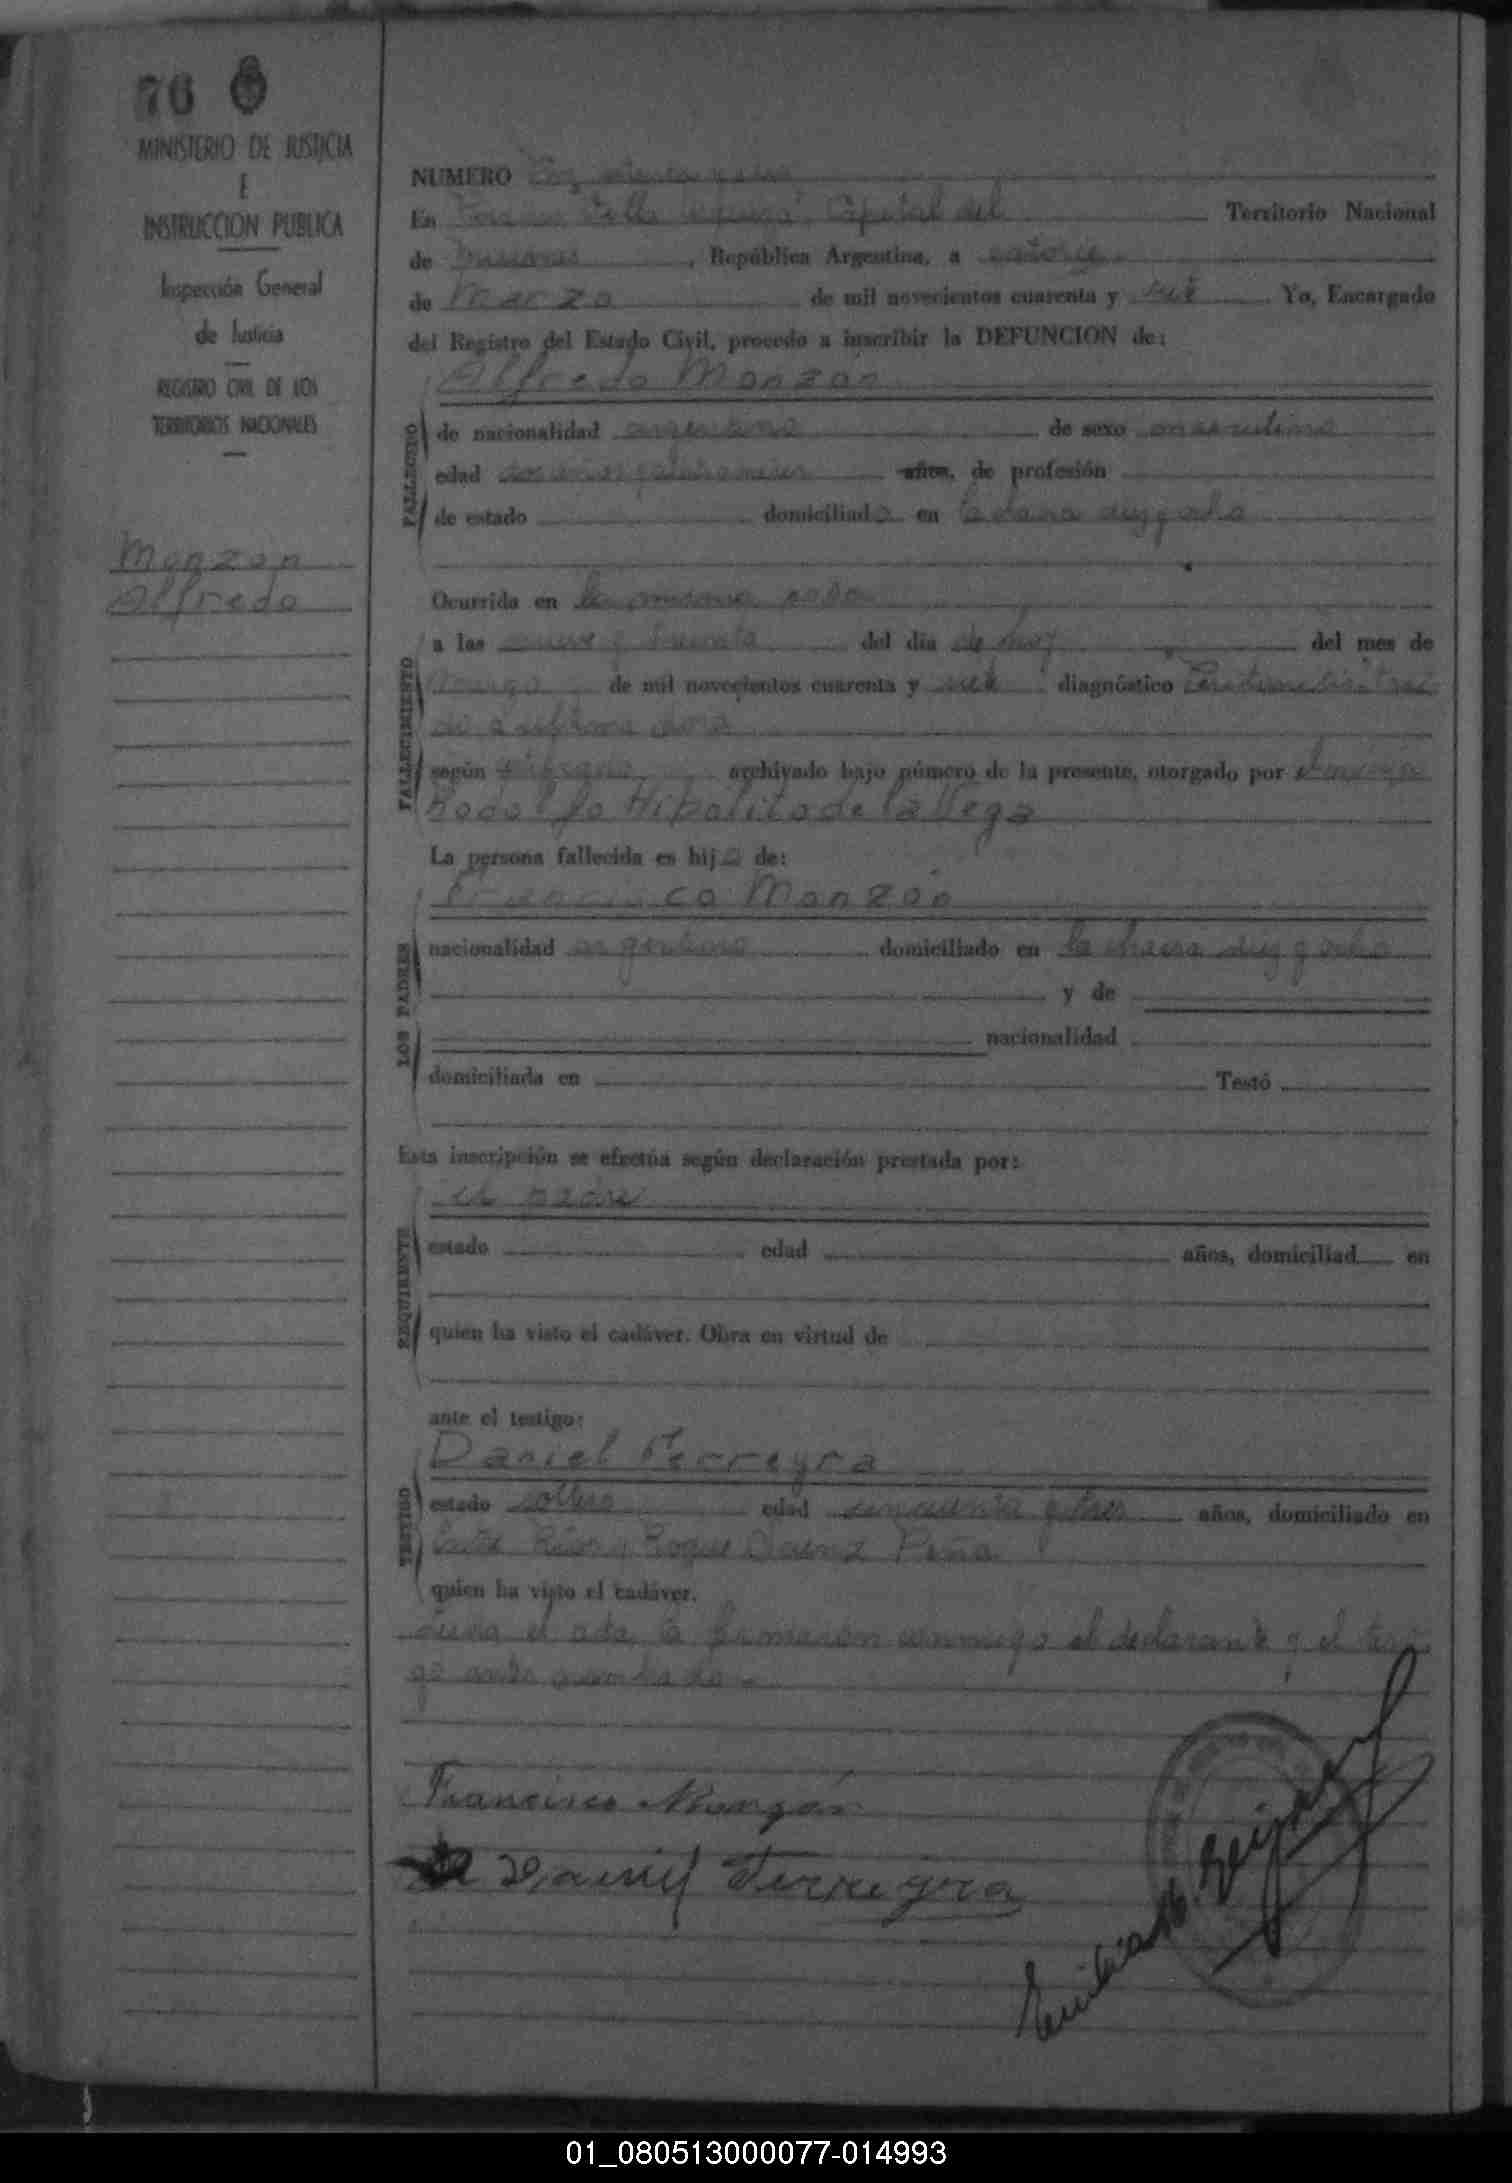 76
MINISTERIO DE JUSTICIA
E
INSTRUCCION PUBLICA
Inspección General
de Justicia
REGISTRO CIVIL DE LOS
TERRITORIOS NACIONALES
Monzon
Alfredo
NUMERO
En Capital del Territorio Nacional
de Misiones, República Argentina, a catorce
de Marzo de mil novecientos cuarenta y siete Yo, Encargado
del Registro del Estado Civil, procedo a inscribir la DEFUNCION de:
Alfredo Monzon
FALLECIDO
de nacionalidad argentino de sexo masculino
edad dos años y cuatro meses años, de profesión
de estado domiciliado en la chacra diez y ocho
FALLECIMIENTO
Ocurrida en la misma casa
a las nueve y treinta del día de hoy del mes de
marzo de mil novecientos cuarenta y siete diagnóstico
según archivado bajo número de la presente, otorgado por
Rodolfo Hipolito de la Vega
La persona fallecida es hijo de:
LOS PADRES
Francisco Monzón
nacionalidad argentino domiciliado en la chacra diez y ocho
y de
nacionalidad
domiciliada en Testó
Esta inscripción se efectúa según declaración prestada por:
REQUIRENTE
el padre
estado edad años, domiciliad en
quien ha visto el cadáver. Obra en virtud de
ante el testigo:
TESTIGO
Daniel Ferreyra
estado soltero edad cincuenta y tres años, domiciliado en
Entre Rios y Roque Saenz Peña
quien ha visto el cadáver.
el acta, la firmaron conmigo el declarante y el testi
go
Francisco Monzón
Daniel Ferreyra
01_080513000077-014993